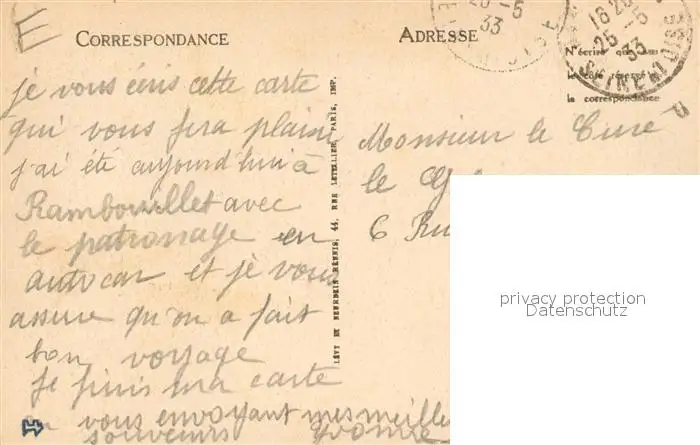 E
CORRESPONDANCE
ADRESSE
33
16
25 -5
33
SEINE ET OISE
N'écrire que
le côté réservé
la correspondance
je vous écris cette carte
qui vous fera plaisir
j'ai été aujourd'hui à
Rambouillet avec
le patronage en
autocar et je vous
assure qu'on a fait
bon voyage
je finis ma carte
en vous envoyant mes meille
souvenirs Yvonne
LÉVY ET NEURDEIN RÉUNIS, 44, RUE LETELLIER, PARIS, IMP.
Monsieur le Curé
le
6 Ru
privacy protection
Datenschutz